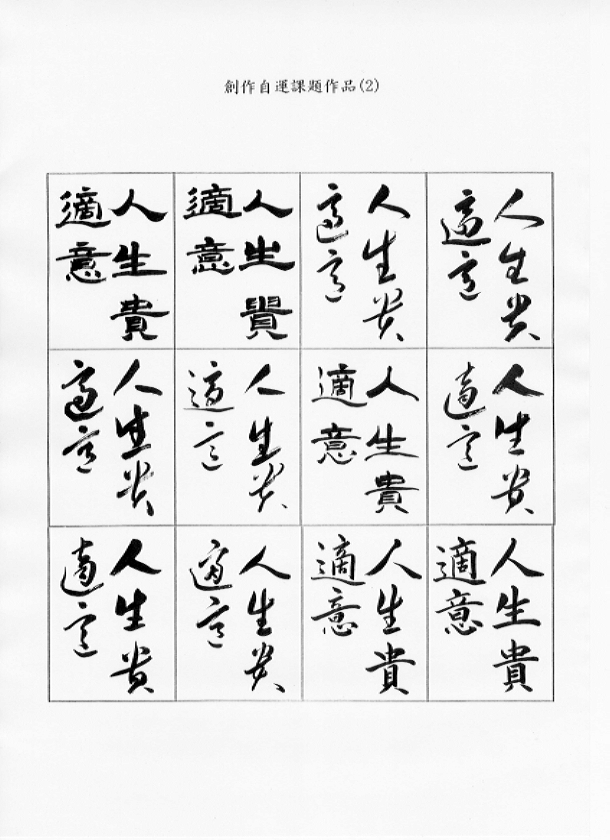 創作自運課題作品(2)
人生貴
適意
人生貴
適意
人生貴
適意
人生貴
適意
人生貴
適意
人生貴
適意
人生貴
適意
人生貴
適意
人生貴
適意
人生貴
適意
人生貴
適意
人生貴
適意